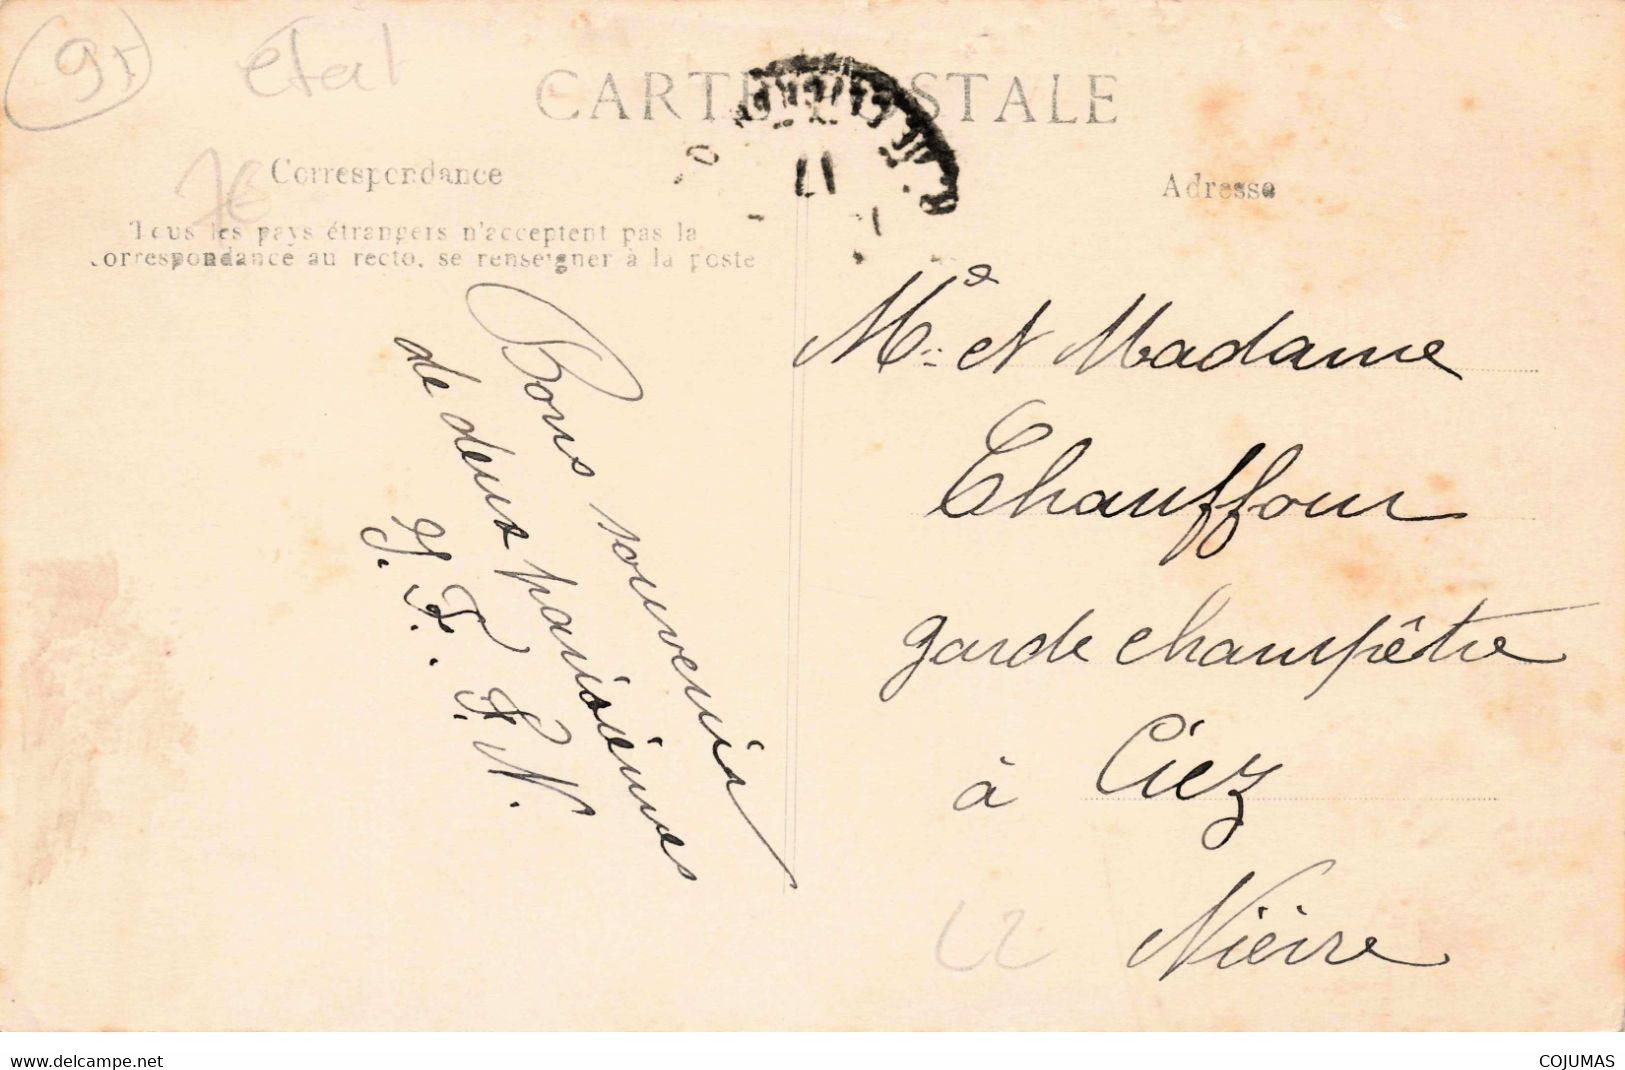 95
état
CARTE POSTALE
7€
Correspondance
Tous les pays étrangers n'acceptent pas la
correspondance au recto, se renseigner à la poste
Bons souvenir
de deux parisiennes
J. F. F. N.
17
Adresse
Mr et Madame
Chauffour
garde champêtre
à Ciez
Nièvre
www.delcampe.net
COJUMAS